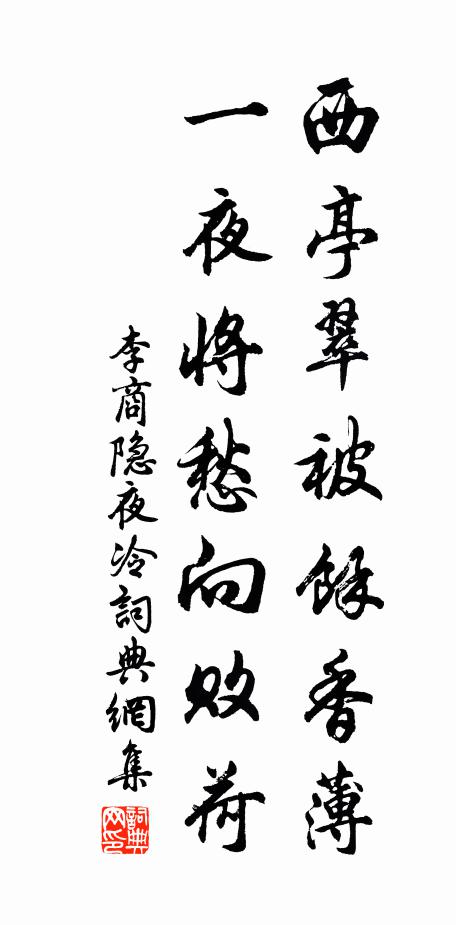 西亭翠被餘香薄
一夜將愁向败荷
李商隐夜冷詞典網集
詞典网印